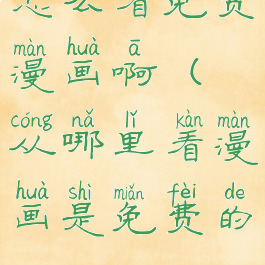 怎么看免费
màn huà ā
漫画啊（
cóng nǎ lǐ kàn màn
从哪里看漫
huà shì miǎn fèi de
画是免费的